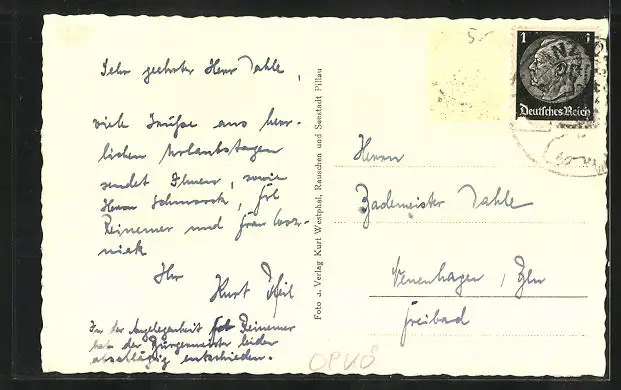 Sehr geehrter Herr Dahle,
viele Grüße aus herr-
lichen Urlaubstagen
sendet Ihnen, sowie
Herrn Schmorck, Frl
Reinemer und Frau
niek
Ihr
Kurt Pfeil
In der Angelegenheit Frl Reinemer
hat der Bürgermeister leider
abschlägig entschieden.
Foto u. Verlag Kurt Westphal, Rauschen und Seestadt Pillau
5.-
1 1
Deutsches Reich
Herrn
Bademeister Dahle
Neuenhagen, Bln
Freibad
OPVÖ